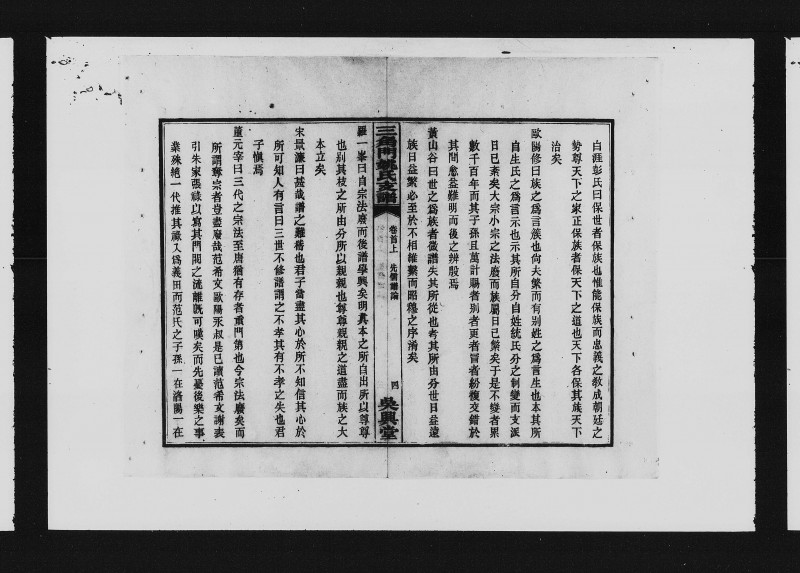 白涯彭氏曰保世者保族也惟能保族而忠義之教成朝廷之
勢尊天下之家正保族者保天下之道也天下各保其族天下
治矣
歐陽修曰族之為言簇也尚夫繁而有別姓之為言生也本其所
自生氏之為言示也示其所自分自姓統氏分之制變而支派
日已紊矣大宗小宗之法廢而族屬日已繁矣于是不變者累
數千百年而其子孫且萬計賜者別者更者冒者紛複交錯於
其間愈益難明而後之辨殽焉
黃山谷曰世之為族者徵譜失其所從也考其所由分世日益遠
族日益繁必至於不相維繫而昭穆之序淆矣
三角門姚氏支譜
卷首上
先儒譜論
四
吳興堂
羅一峯曰自宗法廢而後譜學興矣明其本之所自出所以尊尊
也別其枝之所由分所以親親也尊尊親親之道盡而族之大
本立矣
宋景濂曰甚哉譜之難稽也君子當盡其心於所不知信其心於
所可知人有言曰三世不修譜謂之不孝其有不孝之失也君
子慎焉
董元宰曰三代之宗法至唐猶有存者重門第也今宗法廢矣而
所謂奪宗者豈盡廢哉范希文歐陽永叔是已讀范希文謝表
引朱家張祿以寫其門閥之流離既可嘆矣而先憂後樂之事
業殊絕一代推其祿入為義田而范氏之子孫一在洛陽一在